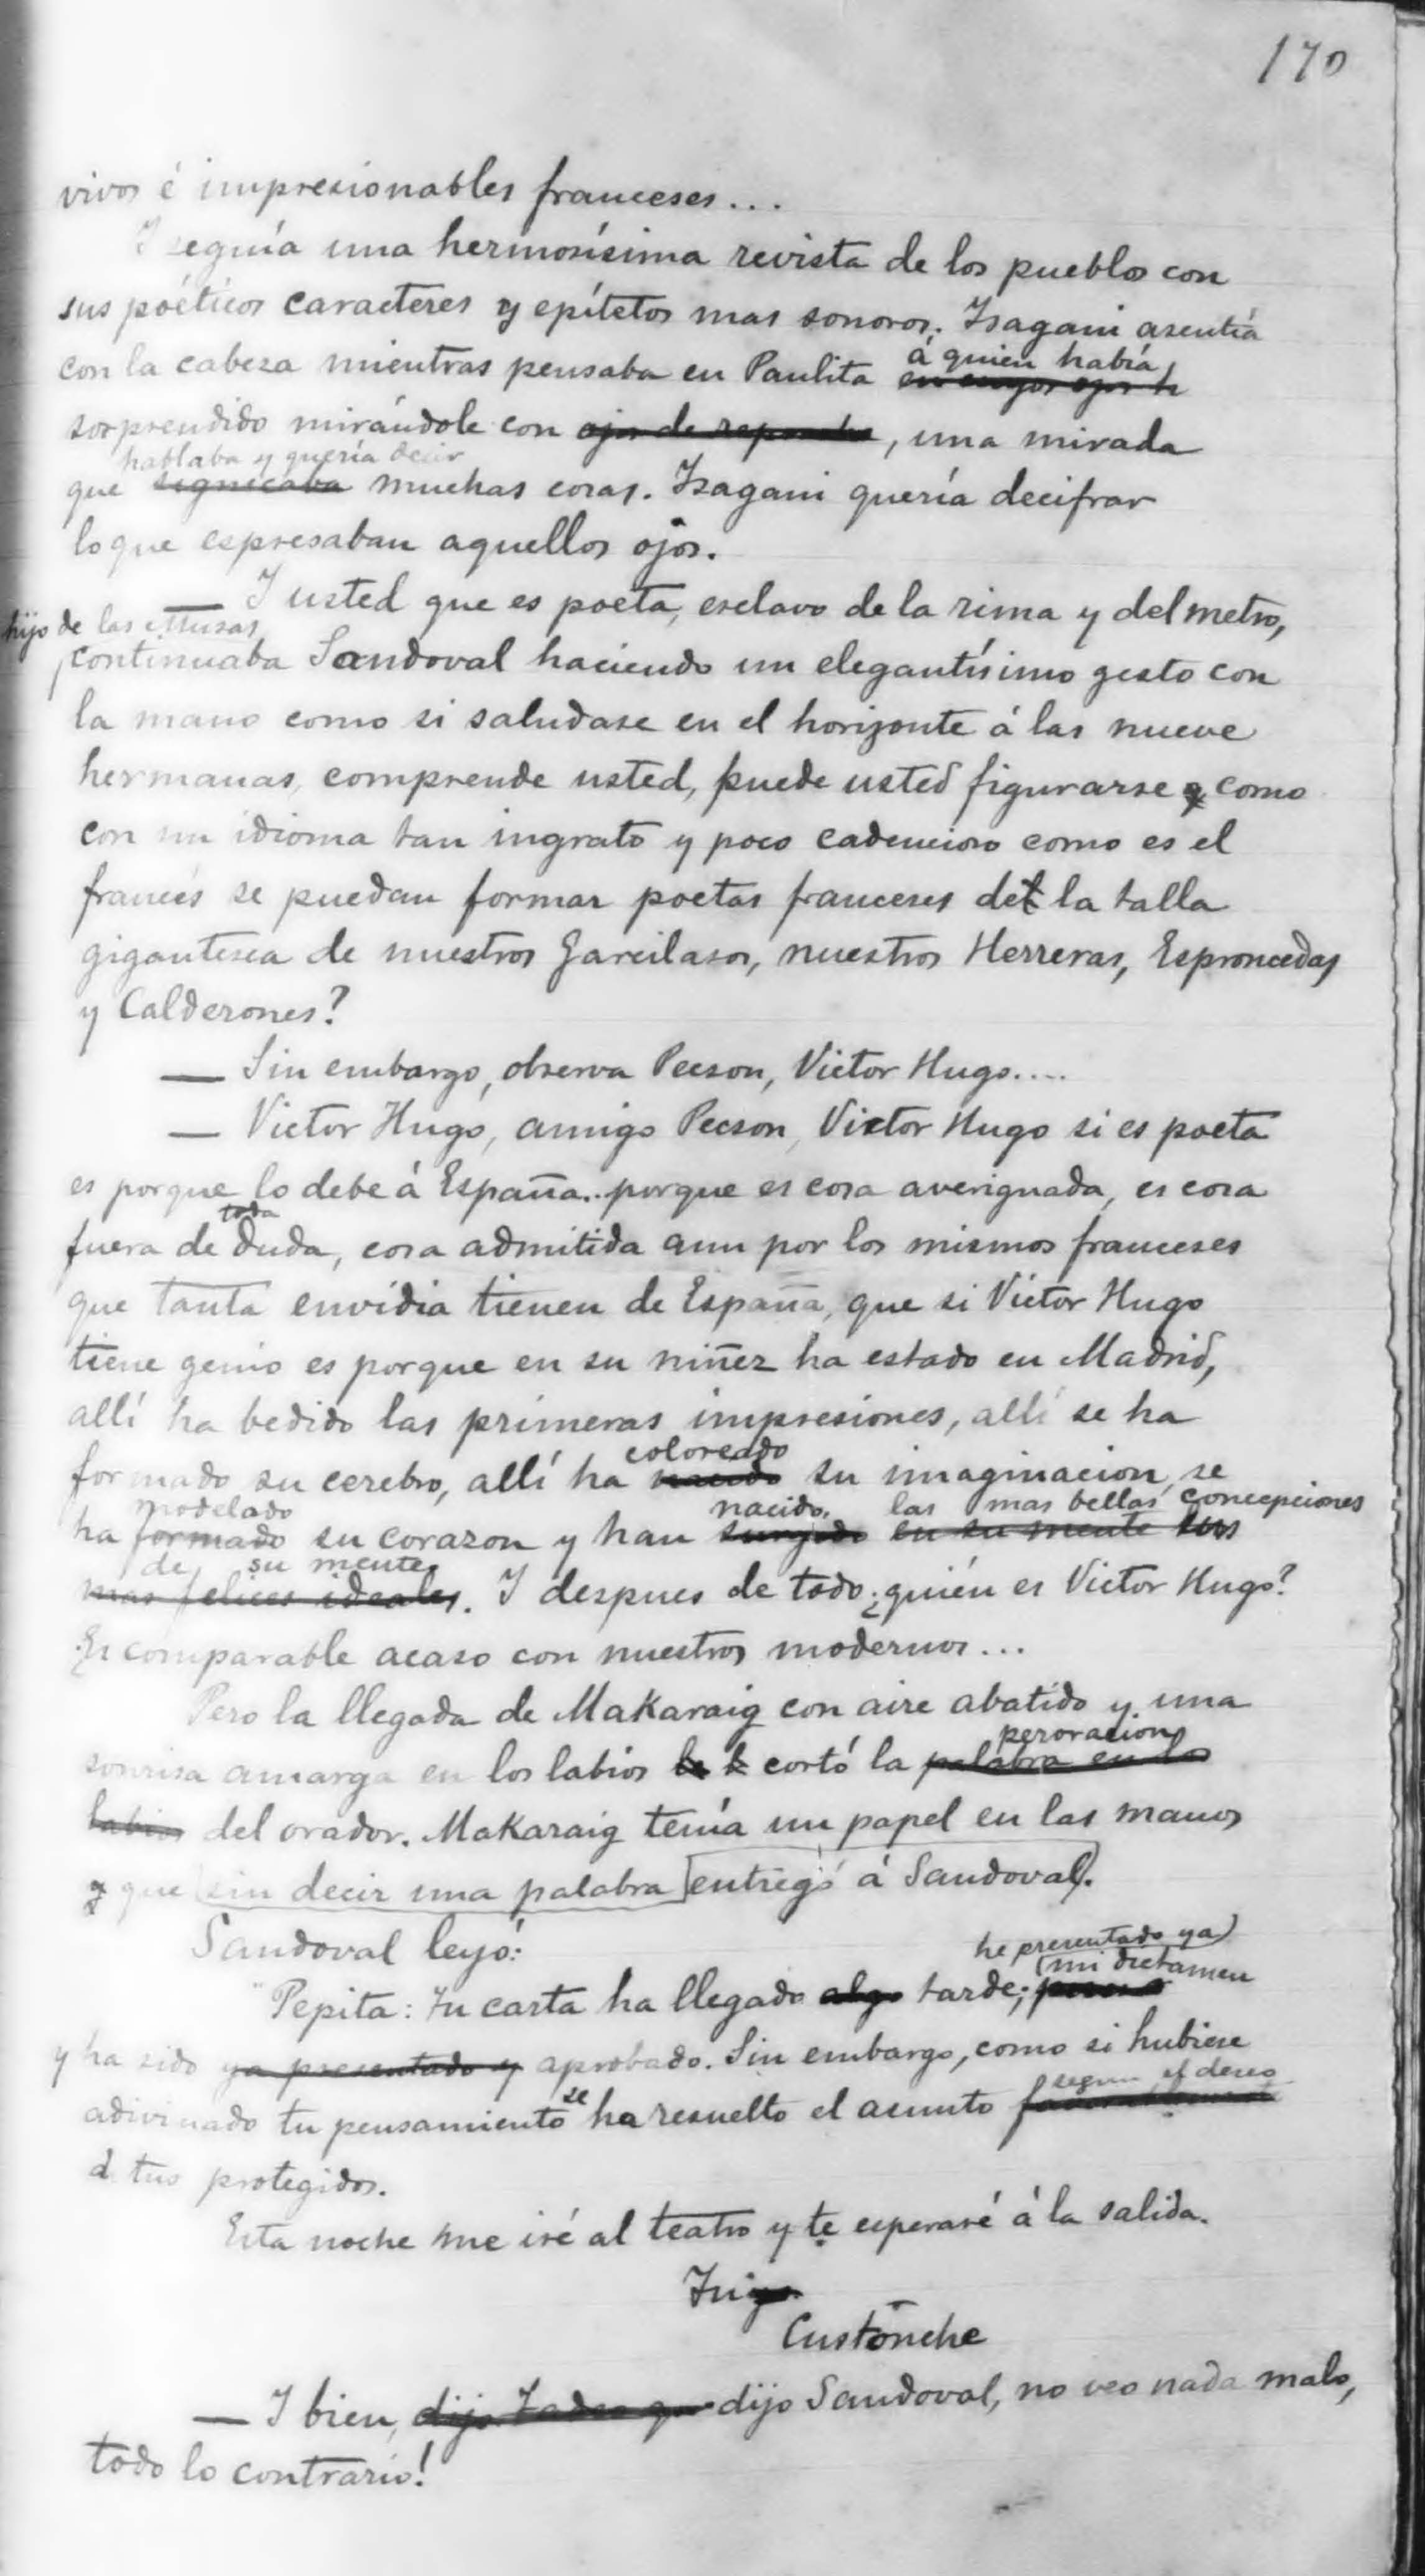 170
vivos é impresionables franceses...
I seguía una hermosísima revista de los pueblos con
sus poéticos caracteres y epítetos mas sonoros. Isagani asentía
con la cabeza mientras pensaba en Paulita á quien había
sorprendido mirándole con ojos de reproche, una mirada
hablaba y quería decir
que significaba muchas cosas. Isagani quería decifrar
lo que espresaban aquellos ojos.
— I usted que es poeta, esclavo de la rima y del metro,
hijo de las Musas,
continuaba Sandoval haciendo un elegantísimo gesto con
la mano como si saludase en el horizonte á las nueve
hermanas, comprende usted, puede usted figurarse como
con un idioma tan ingrato y poco cadencioso como es el
francés se puedan formar poetas franceses de la talla
gigantesca de nuestros Garcilasos, nuestros Herreras, Esproncedas
y Calderones?
— Sin embargo, observa Pecson, Victor Hugo....
— Victor Hugo, amigo Pecson, Victor Hugo si es poeta
es porque lo debe á España.. porque es cosa averiguada, es cosa
toda
fuera de duda, cosa admitida aun por los mismos franceses
que tanta envidia tienen de España, que si Victor Hugo
tiene genio es porque en su niñez ha estado en Madrid,
allí ha bedido las primeras impresiones, allí se ha
coloreado
formado su cerebro, allí ha nacido su imaginacion, se
modelado nacido las mas bellas concepciones
ha formado su corazon y han surgido en su mente sus
de su mente
mas felices ideales. I despues de todo ¿quién es Victor Hugo?
Es comparable acaso con nuestros modernos...
Pero la llegada de Makaraig con aire abatido y una
peroracion
sonrisa amarga en los labios cortó la palabra en los
labios del orador. Makaraig tenía un papel en las manos
y que sin decir una palabra entregó á Sandoval.
Sandoval leyó:
he presentado ya
mi dictamen
"Pepita: tu carta ha llegado algo tarde;
y ha sido ya presentado y aprobado. Sin embargo, como si hubiese
segun el deseo
adivinado tu pensamiento se ha resuelto el asunto
de tus protegidos.
Esta noche me iré al teatro y te esperaré á la salida.
Custonche
— I bien, dijo Tadeo que dijo Sandoval, no veo nada malo,
todo lo contrario!